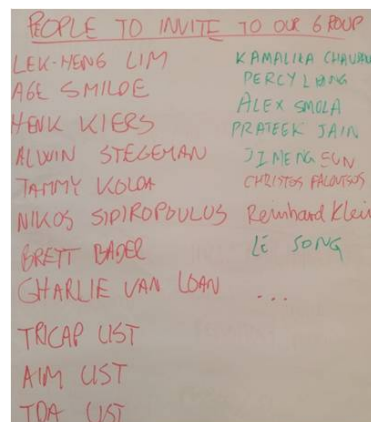 PEOPLE TO INVITE TO OUR GROUP
LEK-HENG LIM
AGE SMILDE
HENK KIERS
ALWIN STEGEMAN
TAMMY KOLDA
NIKOS SIDIROPOULOS
BRETT BADER
CHARLIE VAN LOAN
TRICAP LIST
AIM LIST
TDA LIST
KAMALIKA
PERCY LIANG
ALEX SMOLA
PRATEEK JAIN
JIMENG SUN
CHRISTOS FALOUTSOS
Reinhard Klein
LE SONG
...